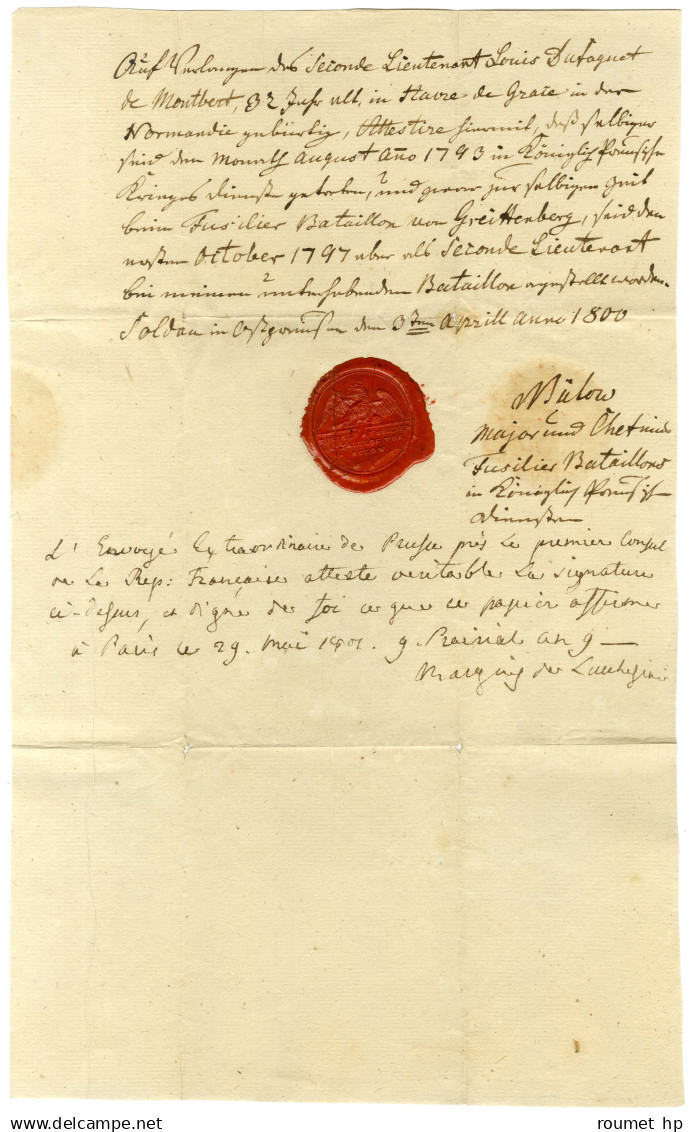 Auf Verlangen des Seconde Lieutenant Louis Dufaguet
de Montbert, 32 Jahr alt, in Havre de Grace in der
Normandie gebürtig, Attestire hiermit, daß selbiger
seid den Monath August Anno 1793 in Königlich Preußische
Krieges Dienste getreten, und zwar zur selbigen Zeit
beim Fusilier Bataillon von Greiffenberg, seid den
October 1797 aber als Seconde Lieutenant
bei meinen unterhabenden Bataillon angestellt worden.
Soldau in Ostpreußen den 3ten Aprill Anno 1800
vBülow
Major und Chef eines
Fusilier Bataillons
in Königlich Preußisch
Diensten
L'Envoyé Extraordinaire de Prusse près le premier Consul
de la Rep: Française atteste veritable la signature
ci-dessus, et digne de foi ce que ce papier affirme
à Paris ce 29. Mai 1801. 9 Prairial an 9
Marquis de Lucchesini
roumet hp